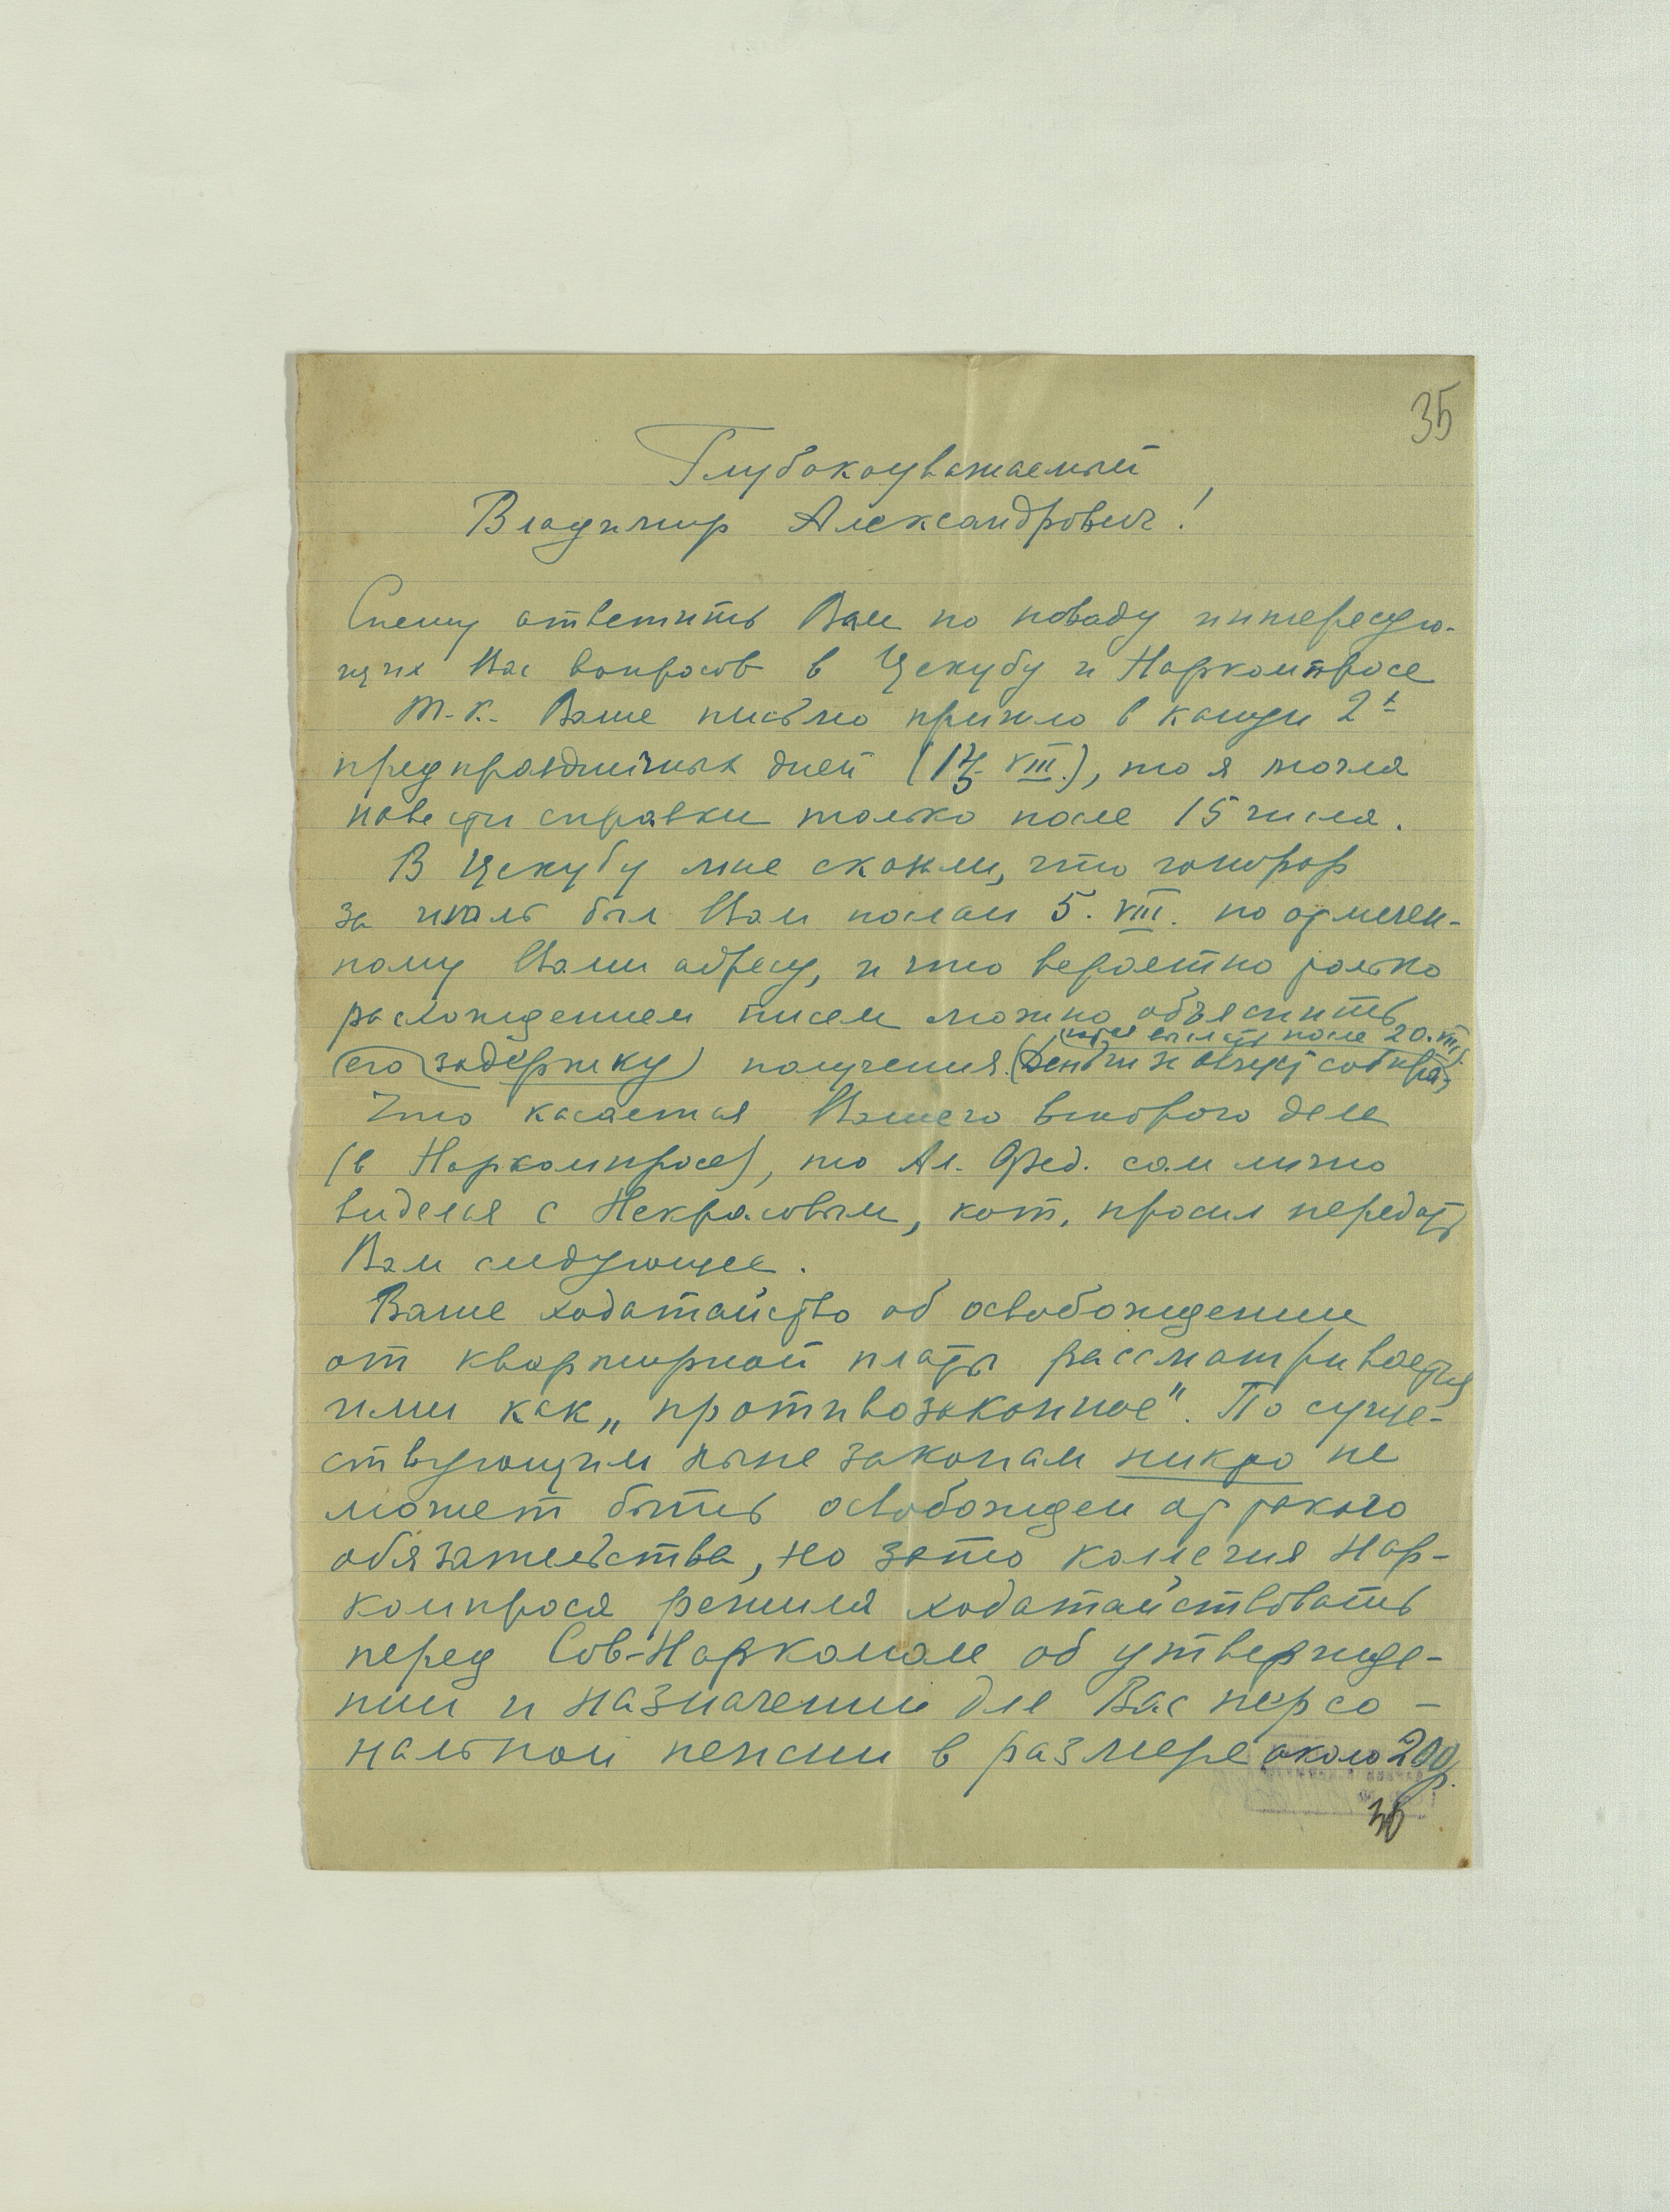 35
Глубокоуважаемый
Владимир Александрович!
Спешу ответить Вам по поводу интересую-
щих Вас вопросов в Цекубу и Наркомпросе
Т.к. Ваше письмо пришло в канун 2х
предпраздничных дней (13 VIII.), то я могла
навести справки только после 15 числа.
В Цекубу мне сказали, что гонорар
за июль был Вам послан 5. VIII. по отмечен-
ному Вами адресу, и что вероятно только
расхождением писем можно объяснить
после 20. VIII.
его (задержку) получения. (Деньги за август
Что касается Вашего второго дела
(в Наркомпросе), то Ал. Фед. сам лично
виделся с Некрасовым, кот. просил передать
Вам следующее.
Ваше ходатайство об освобождении
от квартирной платы рассматривается
ими как „противозаконное". По суще-
ствующим ныне законам никто не
может быть освобожден от такого
обязательства, но зато колегия Нар-
компроса решила ходатайствовать
перед Сов-Наркомом об утвержде-
нии и назначении для Вас персо-
нальной пенсии в размере около 200 р.